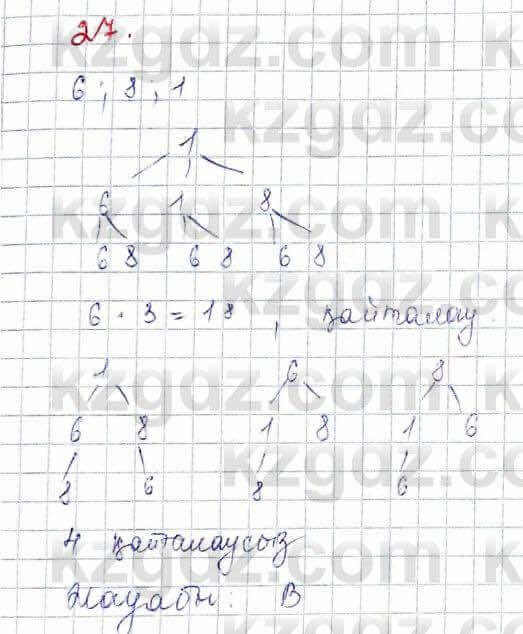 27.
6 ; 8 ; 1
1
6 1 8
6 8 6 8 6 8
6 · 3 = 18 , қайталау.
1 6 8
6 8 1 8 1 6
8 6 8 6
4 қайталаусыз
Жауабы: В
kzgdz.com